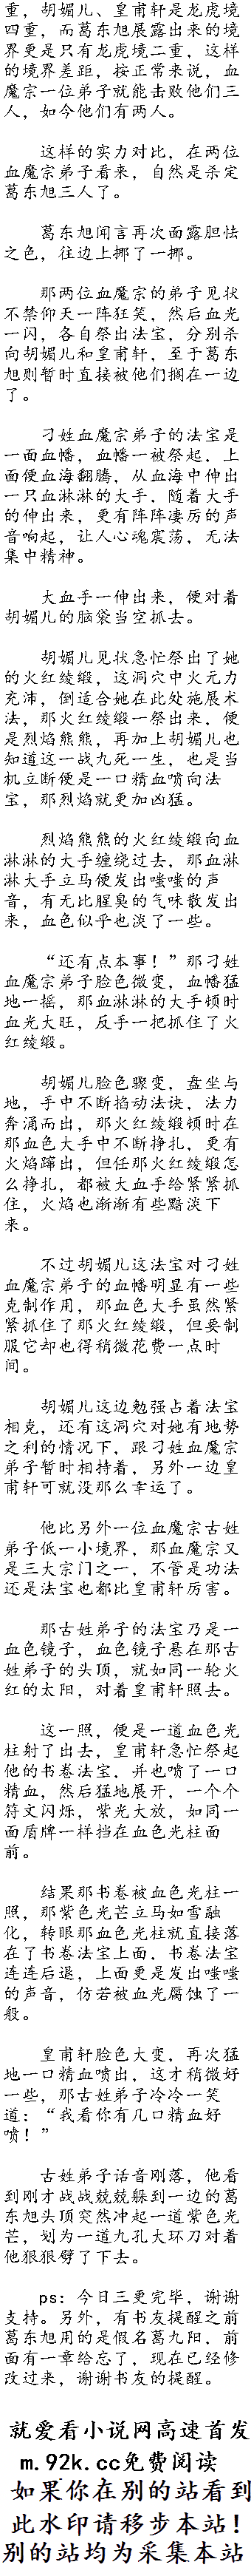 重，胡媚儿、皇甫轩是龙虎境
四重，而葛东旭展露出来的境
界更是只有龙虎境二重，这样
的境界差距，按正常来说，血
魔宗一位弟子就能击败他们三
人，如今他们有两人。
这样的实力对比，在两位
血魔宗弟子看来，自然是杀定
葛东旭三人了。
葛东旭闻言再次面露胆怯
之色，往边上挪了一挪。
那两位血魔宗的弟子见状
不禁仰天一阵狂笑，然后血光
一闪，各自祭出法宝，分别杀
向胡媚儿和皇甫轩，至于葛东
旭则暂时直接被他们搁在一边
了。
刁姓血魔宗弟子的法宝是
一面血幡，血幡一被祭起，上
面便血海翻腾，从血海中伸出
一只血淋淋的大手，随着大手
的伸出来，更有阵阵凄厉的声
音响起，让人心魂震荡，无法
集中精神。
大血手一伸出来，便对着
胡媚儿的脑袋当空抓去。
胡媚儿见状急忙祭出了她
的火红绫缎，这洞穴中火元力
充沛，倒适合她在此处施展术
法，那火红绫缎一祭出来，便
是烈焰熊熊，再加上胡媚儿也
知道这一战九死一生，也是当
机立断便是一口精血喷向法
宝，那烈焰就更加凶猛。
烈焰熊熊的火红绫缎向血
淋淋的大手缠绕过去，那血淋
淋大手立马便发出嗤嗤的声
音，有无比腥臭的气味散发出
来，血色似乎也淡了一些。
“还有点本事！”那刁姓
血魔宗弟子脸色微变，血幡猛
地一摇，那血淋淋的大手顿时
血光大旺，反手一把抓住了火
红绫缎。
胡媚儿脸色骤变，盘坐与
地，手中不断掐动法诀，法力
奔涌而出，那火红绫缎顿时在
那血色大手中不断挣扎，更有
火焰蹿出，但任那火红绫缎怎
么挣扎，都被大血手给紧紧抓
住，火焰也渐渐有些黯淡下
来。
不过胡媚儿这法宝对刁姓
血魔宗弟子的血幡明显有一些
克制作用，那血色大手虽然紧
紧抓住了那火红绫缎，但要制
服它却也得稍微花费一点时
间。
胡媚儿这边勉强占着法宝
相克，还有这洞穴对她有地势
之利的情况下，跟刁姓血魔宗
弟子暂时相持着，另外一边皇
甫轩可就没那么幸运了。
他比另外一位血魔宗古姓
弟子低一小境界，那血魔宗又
是三大宗门之一，不管是功法
还是法宝也都比皇甫轩厉害。
那古姓弟子的法宝乃是一
血色镜子，血色镜子悬在那古
姓弟子的头顶，就如同一轮火
红的太阳，对着皇甫轩照去。
这一照，便是一道血色光
柱射了出去，皇甫轩急忙祭起
他的书卷法宝，并也喷了一口
精血，然后猛地展开，一个个
符文闪烁，紫光大放，如同一
面盾牌一样挡在血色光柱面
前。
结果那书卷被血色光柱一
照，那紫色光芒立马如雪融
化，转眼那血色光柱就直接落
在了书卷法宝上面，书卷法宝
连连后退，上面更是发出嗤嗤
的声音，仿若被血光腐蚀了一
般。
皇甫轩脸色大变，再次猛
地一口精血喷出，这才稍微好
一些，那古姓弟子冷冷一笑
道：“我看你有几口精血好
喷！”
古姓弟子话音刚落，他看
到刚才战战兢兢躲到一边的葛
东旭头顶突然冲起一道紫色光
芒，划为一道九孔大环刀对着
他狠狠劈了下去。
ps：今日三更完毕，谢谢
支持。另外，有书友提醒之前
葛东旭用的是假名葛九阳，前
面有一章给忘了，现在已经修
改过来，谢谢书友的提醒。
就爱看小说网高速首发
m.92k.cc免费阅读
如果你在别的站看到
此水印请移步本站！
别的站均为采集本站